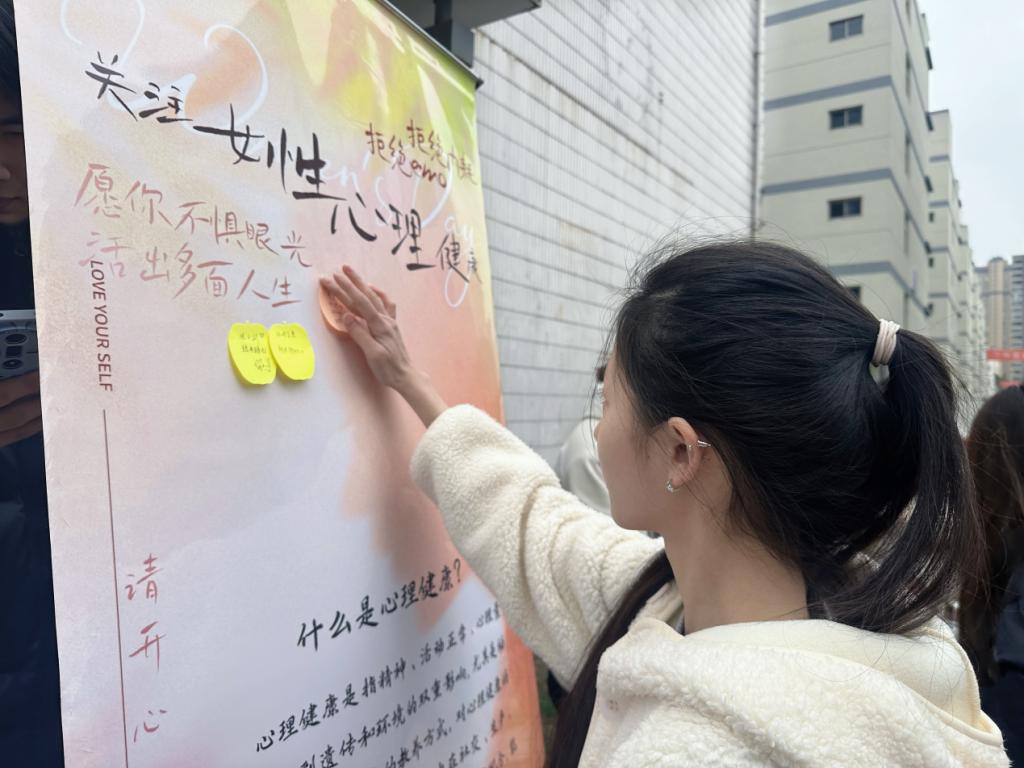 关注女性心理健康
拒绝内耗
拒绝emo
愿你不惧眼光
活出多面人生
LOVE YOUR SELF
请开心
什么是心理健康?
心理健康是指精神、活动正常、心理素
到遗传和环境的双重影响,尤其是
的教养方式,对心理健康的